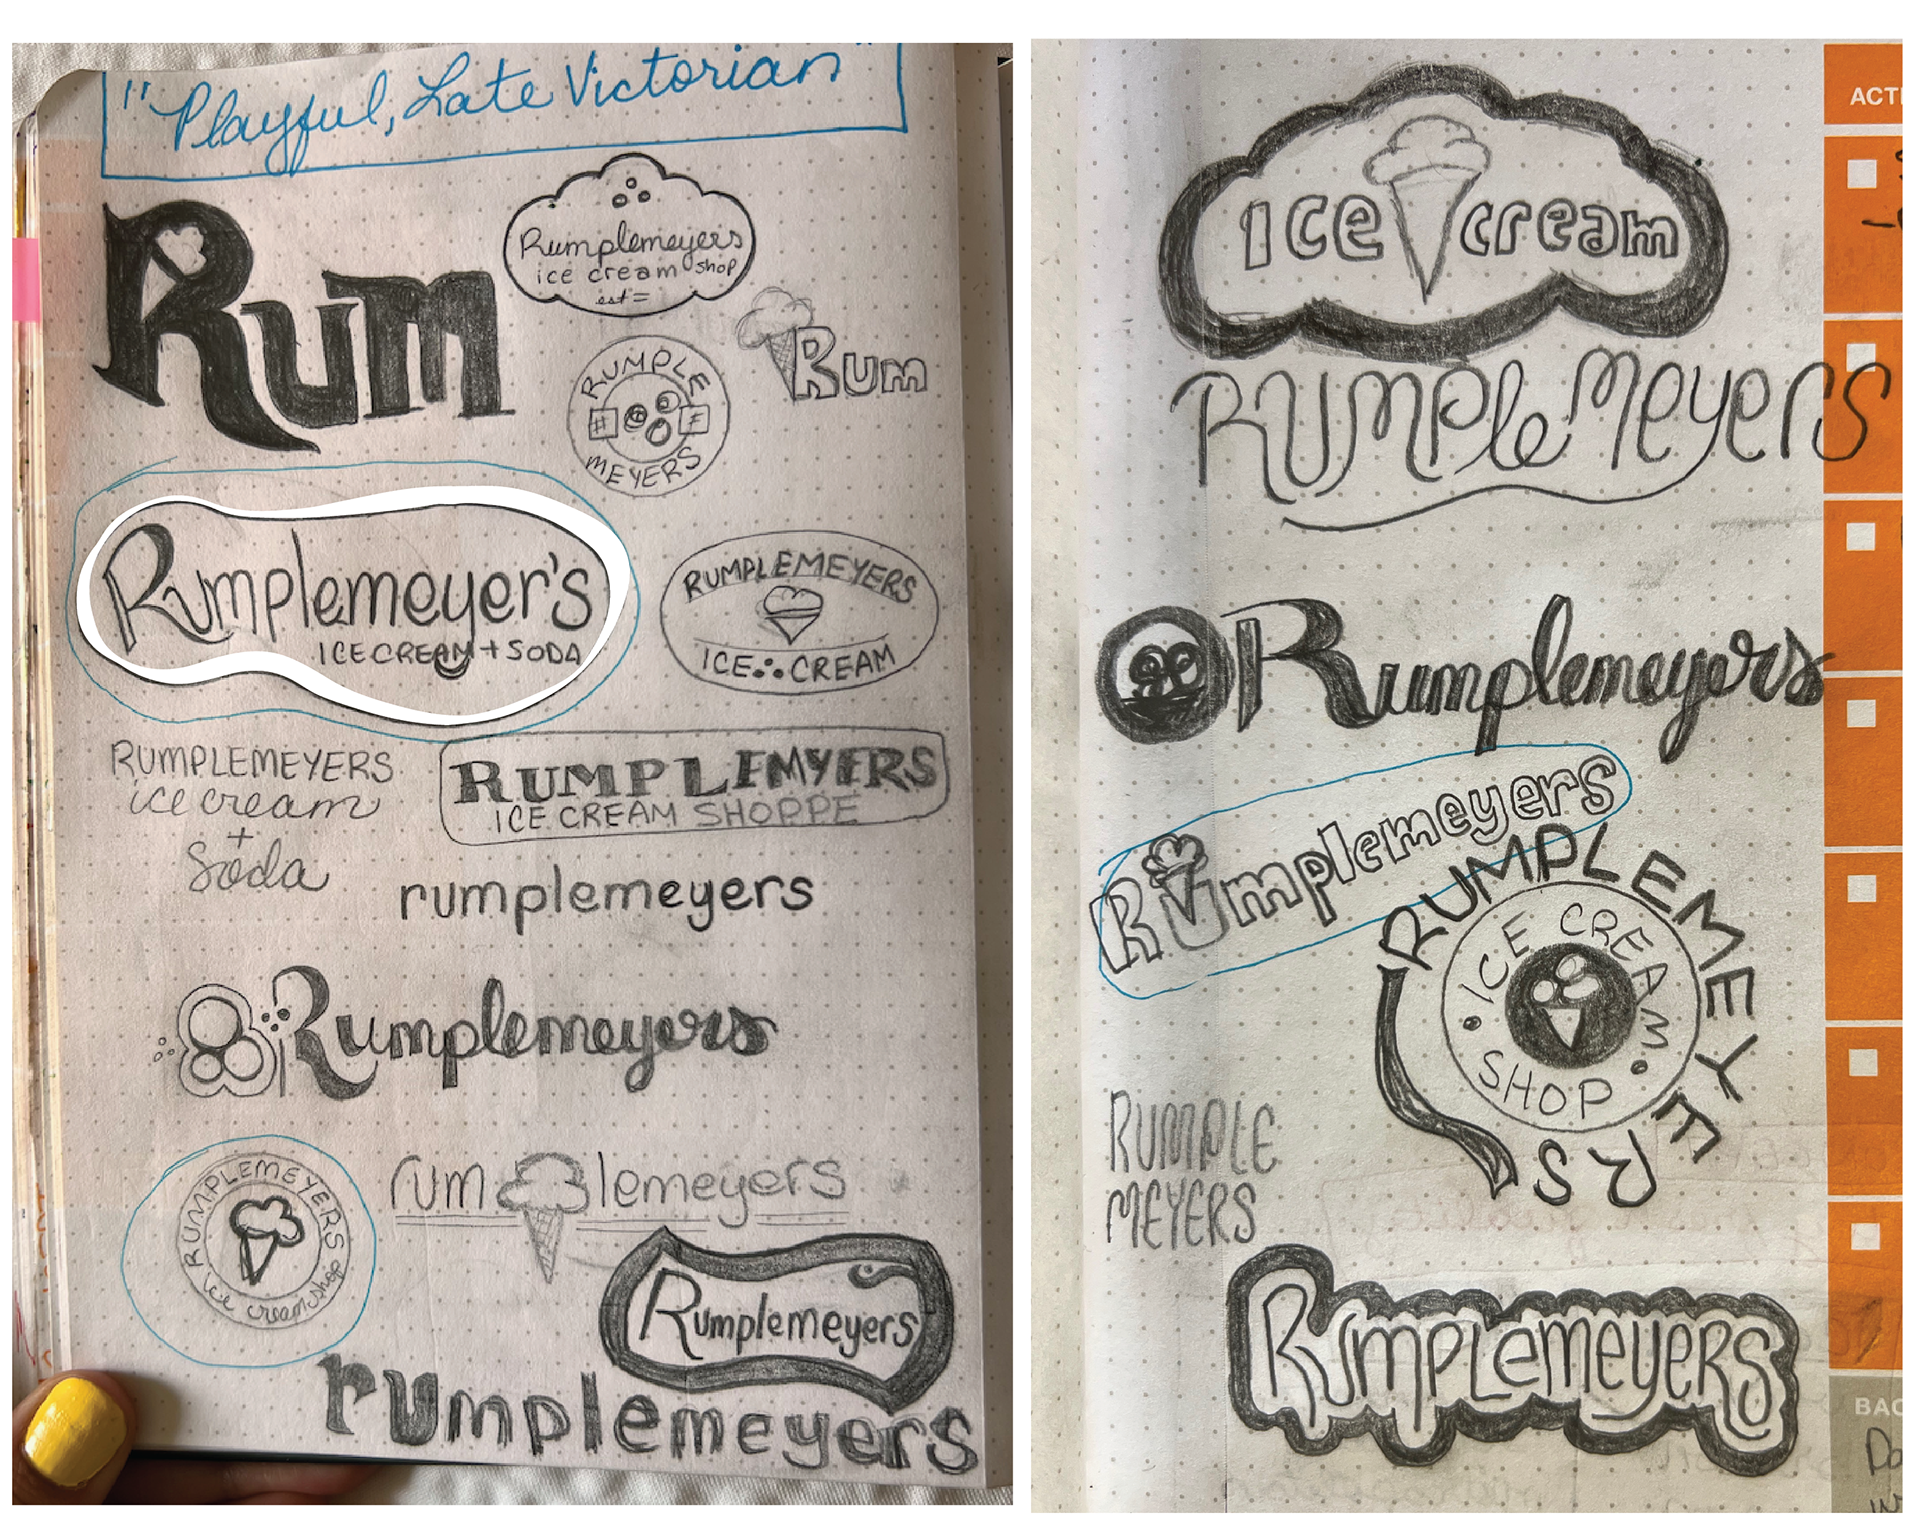 "Playful, Late Victorian"
Rum
Rumplemeyers
ice cream shop
est=
RUMPLE
MEYERS
Rum
Rumplemeyer's
ICE CREAM + SODA
RUMPLEMEYERS
ICE CREAM
RUMPLEMEYERS
ice cream
+
Soda
RUMPLEMYERS
ICE CREAM SHOPPE
rumplemeyers
Rumplemeyers
RUMPLEMEYERS
ice cream shop
rum lemeyers
Rumplemeyers
rumplemeyers
ICE cream
RUMPleMeyers
Rumplemeyers
Rumplemeyers
RUMPLEMEYERS
ICE CREAM
SHOP
RUMPLE
MEYERS
RumpLemeyeRs
ACTI
BAC
Do